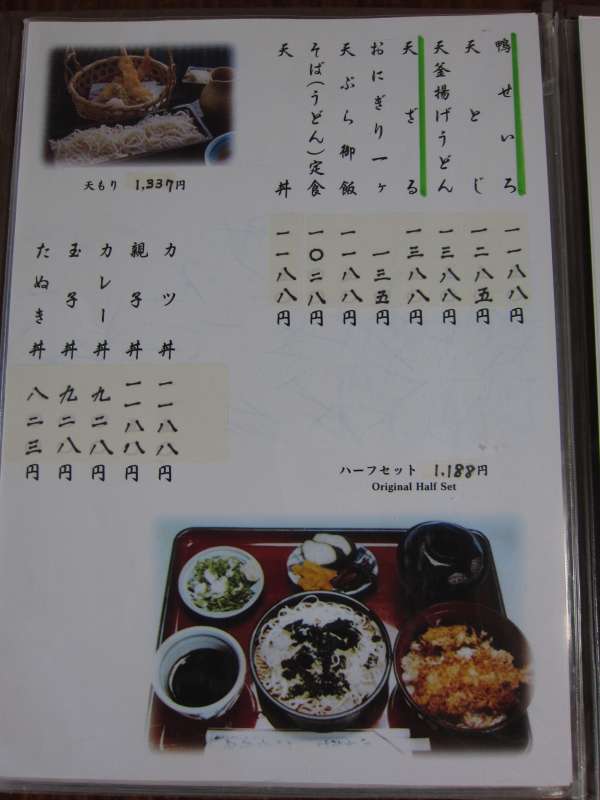 鴨せいろ 一一八八円
天とじ 一二八五円
天釜揚げうどん 一三八八円
天ざる 一三八八円
おにぎり一ヶ 一三五円
天ぷら御飯 一一八八円
そば(うどん)定食 一〇二八円
天丼 一一八八円
天もり 1,337円
カツ丼 一一八八円
親子丼 一一八八円
カレー丼 九二八円
玉子丼 九二八円
たぬき丼 八二三円
ハーフセット 1,188円
Original Half Set